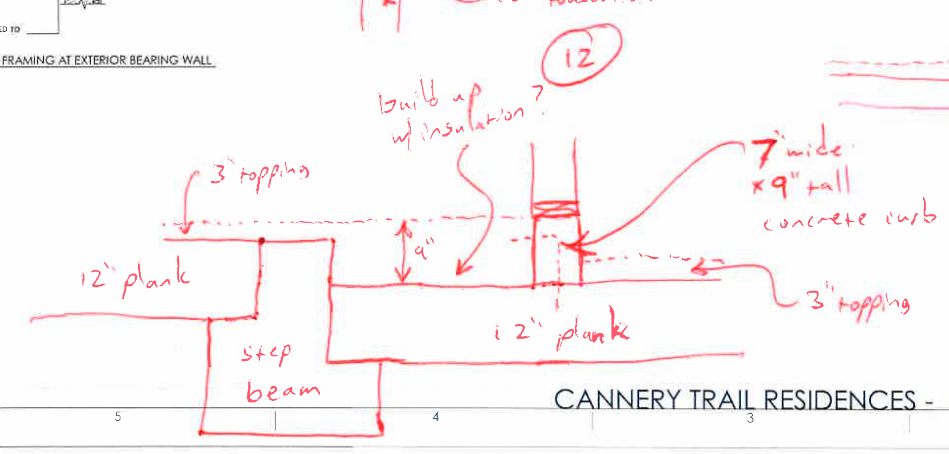 ED TO
FRAMING AT EXTERIOR BEARING WALL
12
build up
w/ insulation?
3" topping
7" wide
x 9" tall
concrete curb
9"
12" plank
3" topping
12" plank
step
beam
CANNERY TRAIL RESIDENCES -
5
4
3